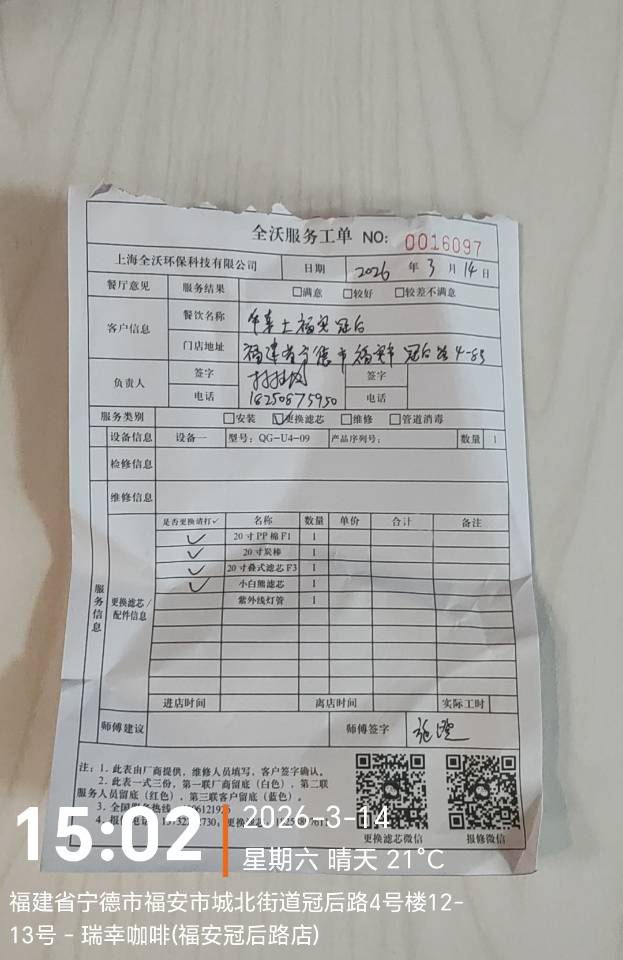 全沃服务工单 NO: 0016097
上海全沃环保科技有限公司 日期 2026 年 3 月 14 日
餐厅意见 服务结果 □满意 □较好 □较差不满意
客户信息 餐饮名称 福安冠后
门店地址 福建省宁德市福安市冠后路4-85
负责人 签字 签字
电话 18250875950 电话
服务类别 □安装 ☑更换滤芯 □维修 □管道消毒
设备信息 设备一 型号：QG-U4-09 产品序列号： 数量 1
检修信息
维修信息
服务信息
更换滤芯/配件信息
是否更换请打✓ 名称 数量 单价 合计 备注
✓ 20寸PP棉F1 1
✓ 20寸炭棒 1
✓ 20寸叠式滤芯F3 1
✓ 小白熊滤芯 1
紫外线灯管 1
进店时间 离店时间 实际工时
师傅建议 师傅签字
注：1. 此表由厂商提供，维修人员填写，客户签字确认。
2. 此表一式三份，第一联厂商留底（白色），第二联
服务人员留底（红色），第三联客户留底（蓝色）。
3. 全国服务热线
4. 更换滤芯
更换滤芯微信 报修微信
15:02
2026-3-14
星期六 晴天 21°C
福建省宁德市福安市城北街道冠后路4号楼12-
13号 - 瑞幸咖啡(福安冠后路店)